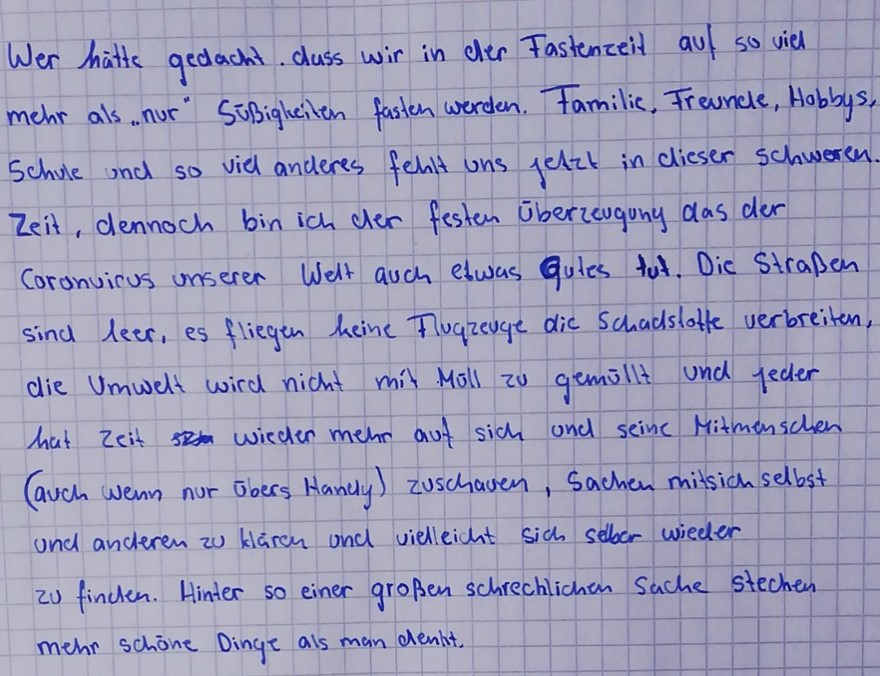 Wer hätte gedacht, dass wir in der Fastenzeit auf so viel
mehr als „nur" Süßigkeiten fasten werden. Familie, Freunde, Hobbys,
Schule und so viel anderes fehlt uns jetzt in dieser schweren.
Zeit, dennoch bin ich der festen Überzeugung das der
Coronvirus unserer Welt auch etwas Gutes tut. Die Straßen
sind leer, es fliegen keine Flugzeuge die Schadstoffe verbreiten,
die Umwelt wird nicht mit Müll zu gemüllt und jeder
hat Zeit wieder mehr auf sich und seine Mitmenschen
(auch wenn nur übers Handy) zuschauen, Sachen mitsich selbst
und anderen zu klären und vielleicht sich selber wieder
zu finden. Hinter so einer großen schrecklichen Sache stecken
mehr schöne Dinge als man denkt.